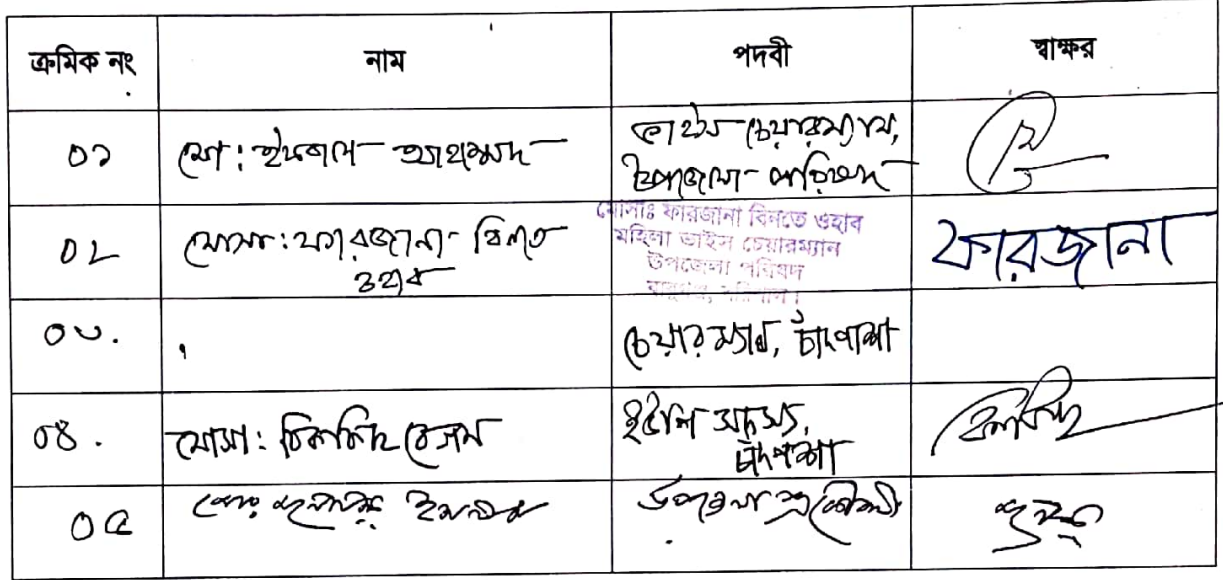 ক্রমিক নং নাম পদবী স্বাক্ষর
০১ মো: ইকবাল আহম্মদ ভাইস চেয়ারম্যান,
উপজেলা পরিষদ
০২ মোসা: ফারজানা বিনতে
ওহাব
মোসাঃ ফারজানা বিনতে ওহাব
মহিলা ভাইস চেয়ারম্যান
উপজেলা পরিষদ
ফারজানা
০৩. চেয়ারম্যান, চাঁদপাশা
০৪. মোসা: বিলকিছ বেগম ইউপি সদস্য,
চাঁদপাশা
বিলকিছ
০৫ ইসলাম উপজেলা প্রকৌশলী